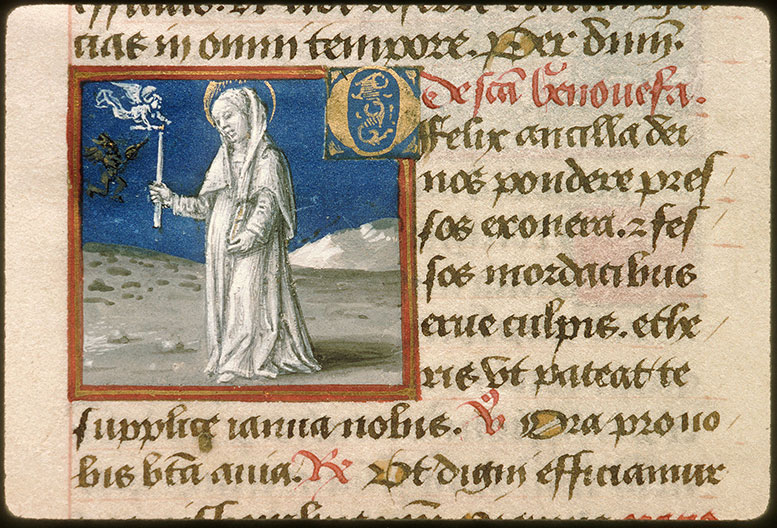 cias in omni tempore. Per dnm̄.
De scā Genouefa.
O felix ancilla dei
nos pondere pres
sos exonera. ⁊ fes
sos mordacibus
erue culpis. ethe
ris vt pateat te
supplice ianua nobis. V̊ Ora pro no
bis bt̄a R̷ Vt digni efficiamur